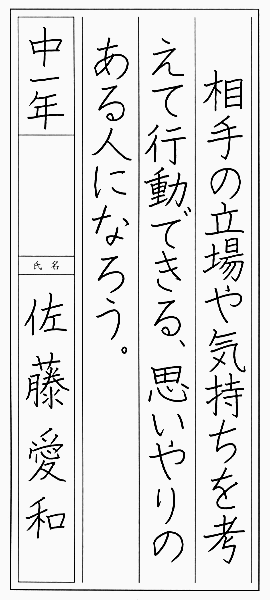 相手の立場や気持ちを考
えて行動できる、思いやりの
ある人になろう。
中一年
氏名
佐藤愛和